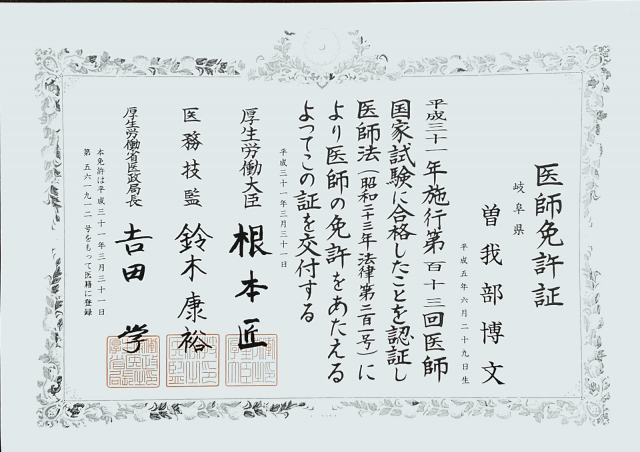 医師免許証
岐阜県
曽我部博文
平成五年六月二十九日生
平成三十一年施行第百十三回医師
国家試験に合格したことを認証し
医師法（昭和二十三年法律第二百一号）に
より医師の免許をあたえる
よってこの証を交付する
平成三十一年三月三十一日
厚生労働大臣 根本匠
医務技監 鈴木康裕
厚生労働省医政局長 吉田学
本免許は平成三十一年三月三十一日
第五六一九一二号をもって医籍に登録